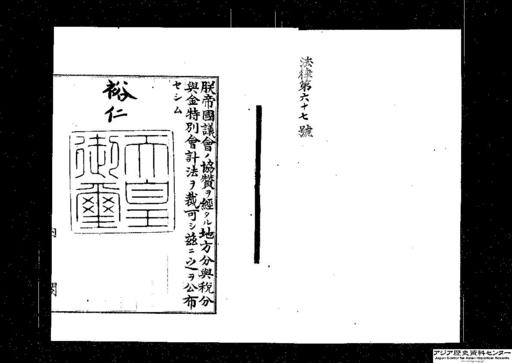 法律第六十七號
朕帝國議會ノ協贊ヲ經タル地方分與稅分
與金特別會計法ヲ裁可シ茲ニ之ヲ公布
セシム
裕仁
天皇
御璽
内閣
アジア歴史資料センター
Japan Center for Asian Historical Records